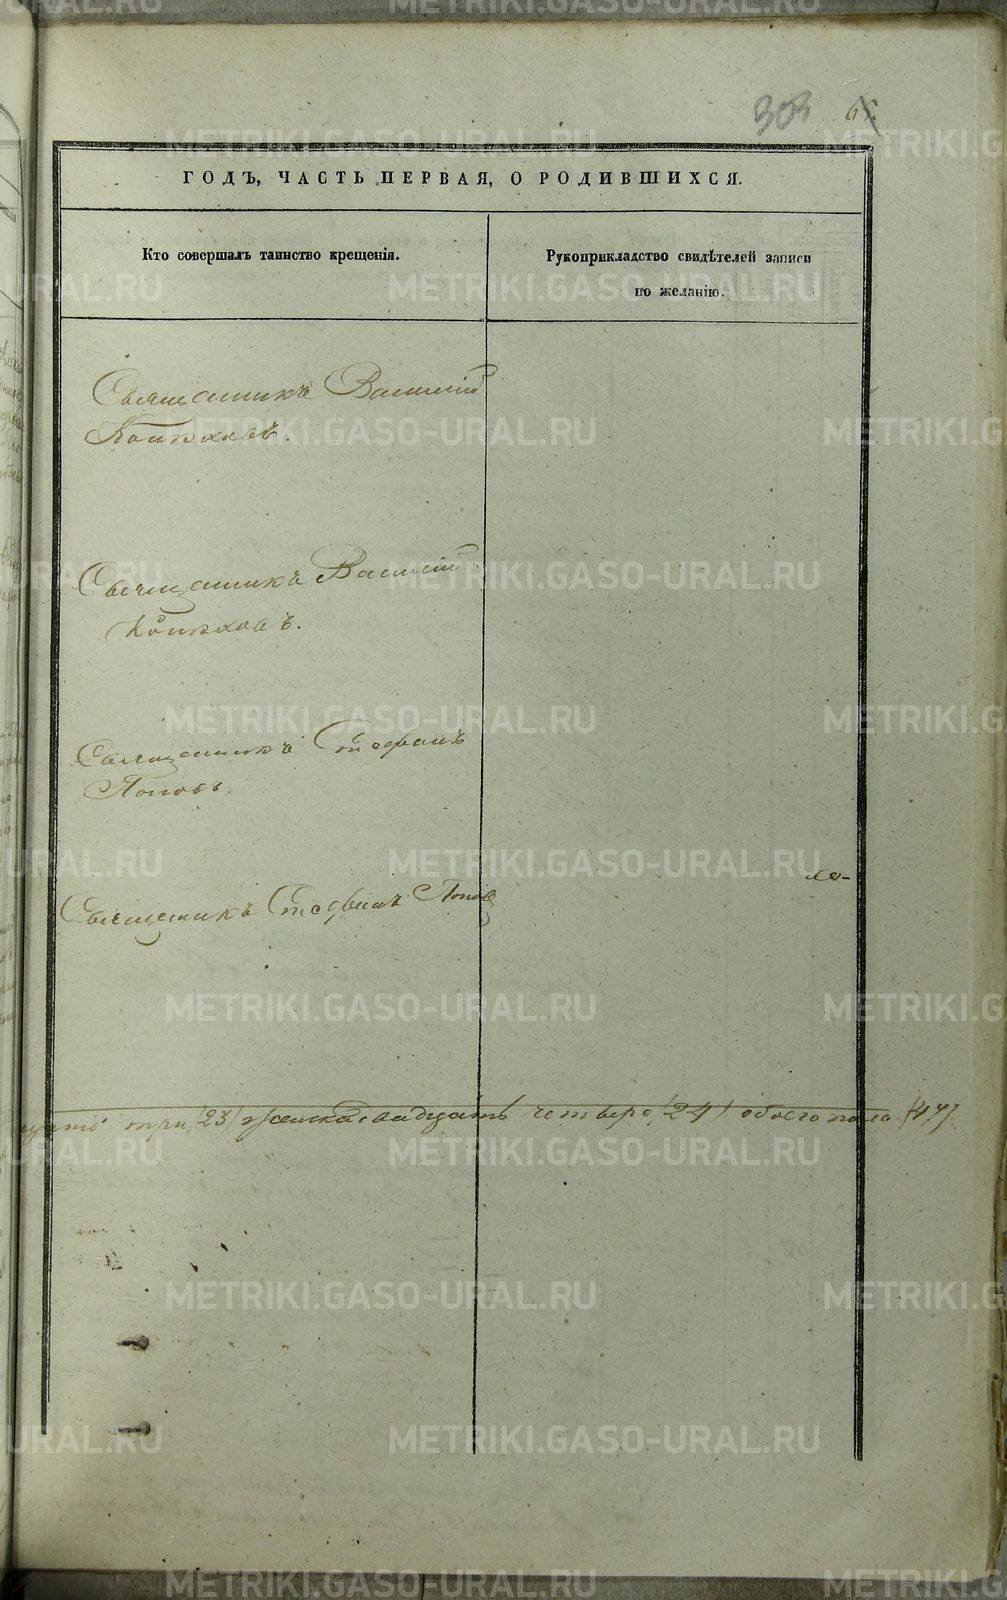 303
ГОДЪ, ЧАСТЬ ПЕРВАЯ, О РОДИВШИХСЯ.
Кто совершалъ таинство крещенія.
Рукоприкладство свидѣтелей записи
по желанію.
Священникъ Василій
Священникъ Василій
Священникъ Стефанъ
Поповъ.
Священникъ Стефанъ Поповъ
три (23) женска двадцать четыре (24) обоего пола (47)
METRIKI.GASO-URAL.RU